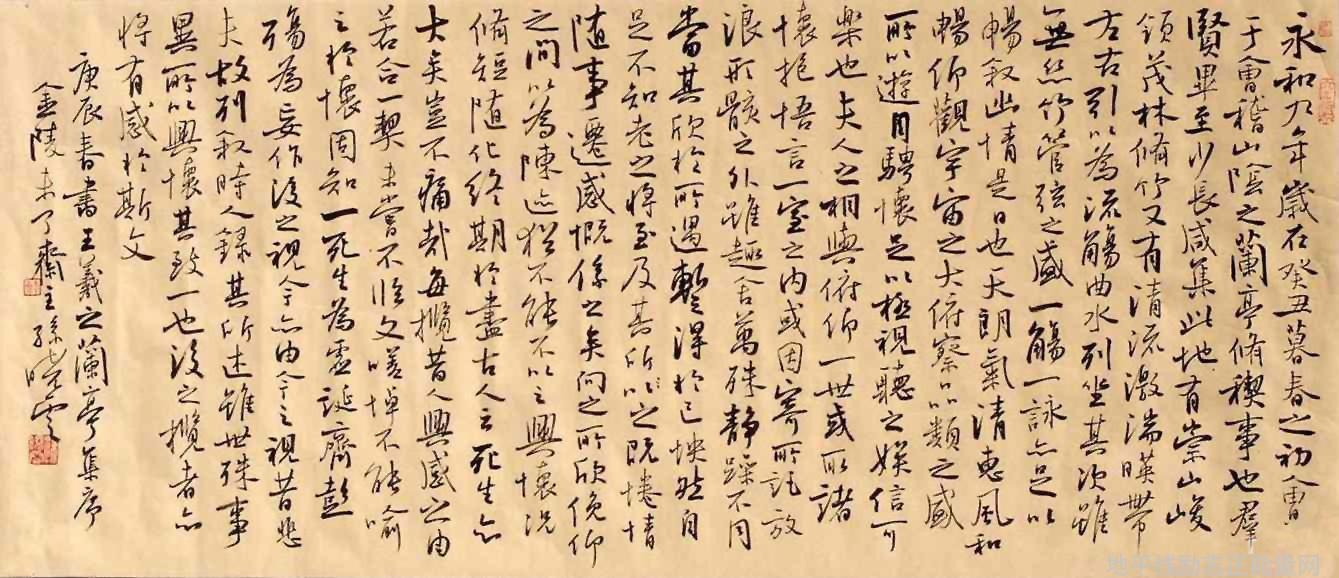 永和九年歲在癸丑暮春之初會
于會稽山陰之蘭亭脩禊事也羣
賢畢至少長咸集此地有崇山峻
領茂林脩竹又有清流激湍暎帶
左右引以為流觴曲水列坐其次雖
無絲竹管弦之盛一觴一詠亦足以
暢敘幽情是日也天朗氣清惠風和
暢仰觀宇宙之大俯察品類之盛
所以遊目騁懷足以極視聽之娛信可
樂也夫人之相與俯仰一世或取諸
懷抱悟言一室之內或因寄所託放
浪形骸之外雖趣舍萬殊靜躁不同
當其欣於所遇暫得於己怏然自
足不知老之將至及其所以之既惓情
随事遷感慨係之矣向之所欣俛仰
之間以為陳迹猶不能不以之興懷況
脩短随化終期於盡古人云死生亦
大矣豈不痛哉每攬昔人興感之由
若合一契未嘗不臨文嗟悼不能喻
之於懷固知一死生為虛誕齊彭
殤為妄作後之視今亦由今之視昔悲
夫故列敘時人録其所述雖世殊事
異所以興懷其致一也後之攬者亦
將有感於斯文
庚辰春書王羲之蘭亭集序
金陵未了齋主孫曉雲